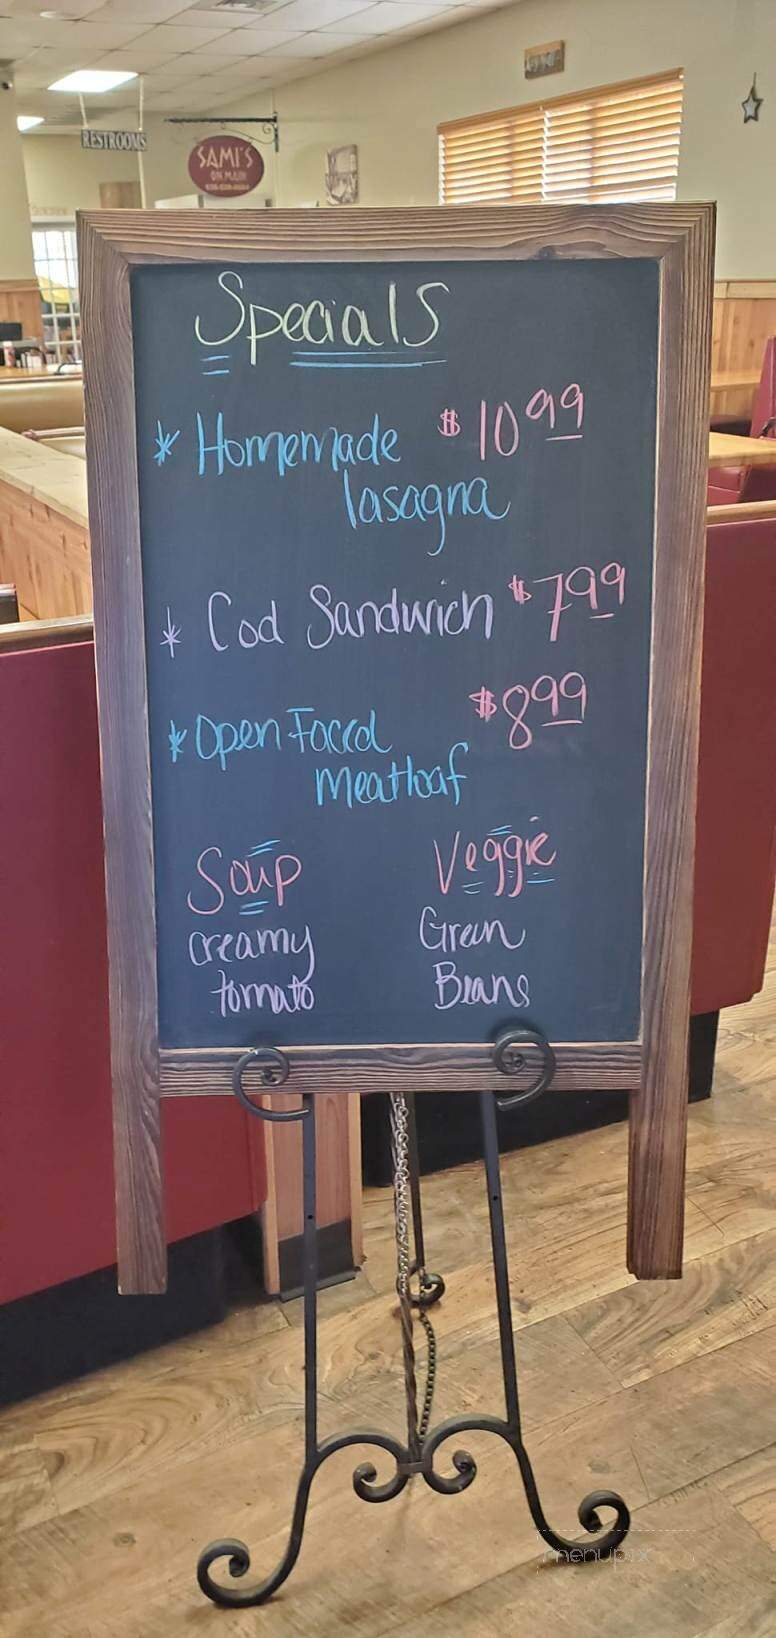 RESTROOMS
SAMI'S
ON MAIN
Specials
* Homemade $10.99
lasagna
* Cod Sandwich $7.99
* Open Faced $8.99
meatloaf
Soup Veggie
creamy Green
tomato Beans
menupix